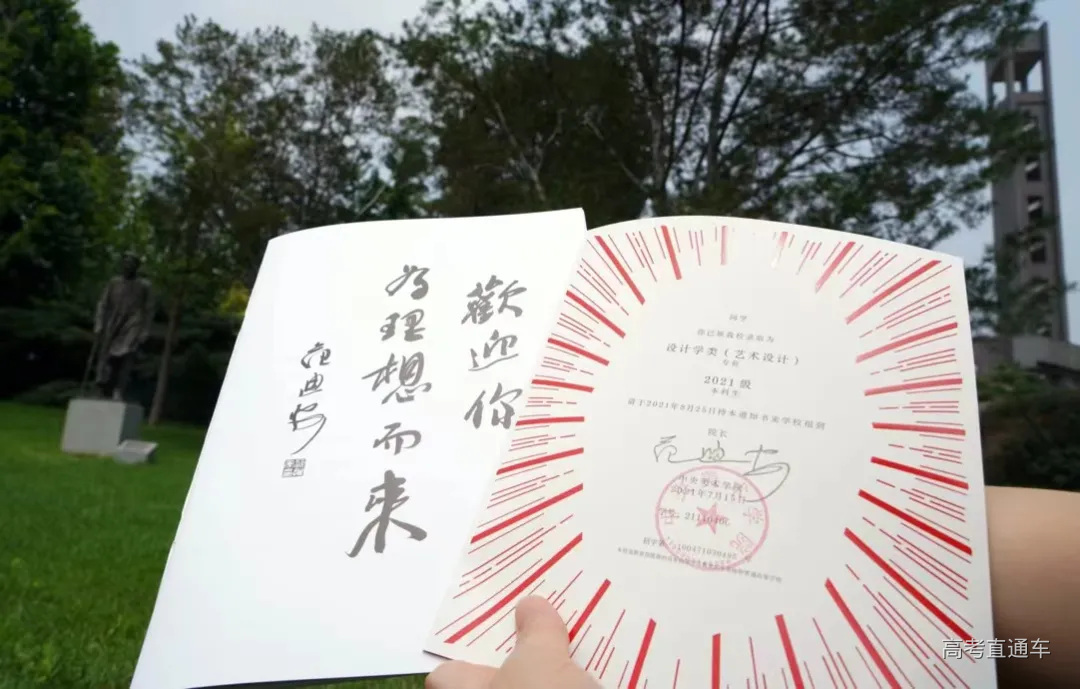 歡迎你
为理想而来
范迪安
同学
你已被我校录取为
设计学类（艺术设计）
专业
2021级
本科生
请于2021年9月25日持本通知书来学校报到
院长
范迪安
中央美术学院
2021年7月15日
高考直通车